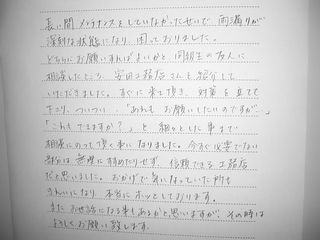 長い間メンテナンスをしていなかったせいで、雨漏りが
深刻な状態になり、困っておりました。
どちらにお願いすればよいかと同級生の友人に
相談したところ、安田工務店さんを紹介して
いただきました。すぐに来て頂き、対策を立てて
下さり、ついつい、「あれもお願いしたいのですが」
「これもできますか?」と細々とした事まで
相談にのって頂く事になりました。今すぐ必要でない
部分は無理にすすめたりせず、信頼できる工務店
だと思いました。おかげで気になっていた所も
きれいになり、本当にホッとしております。
またお世話になる事もあるかと思いますが、その時は
よろしくお願い致します。